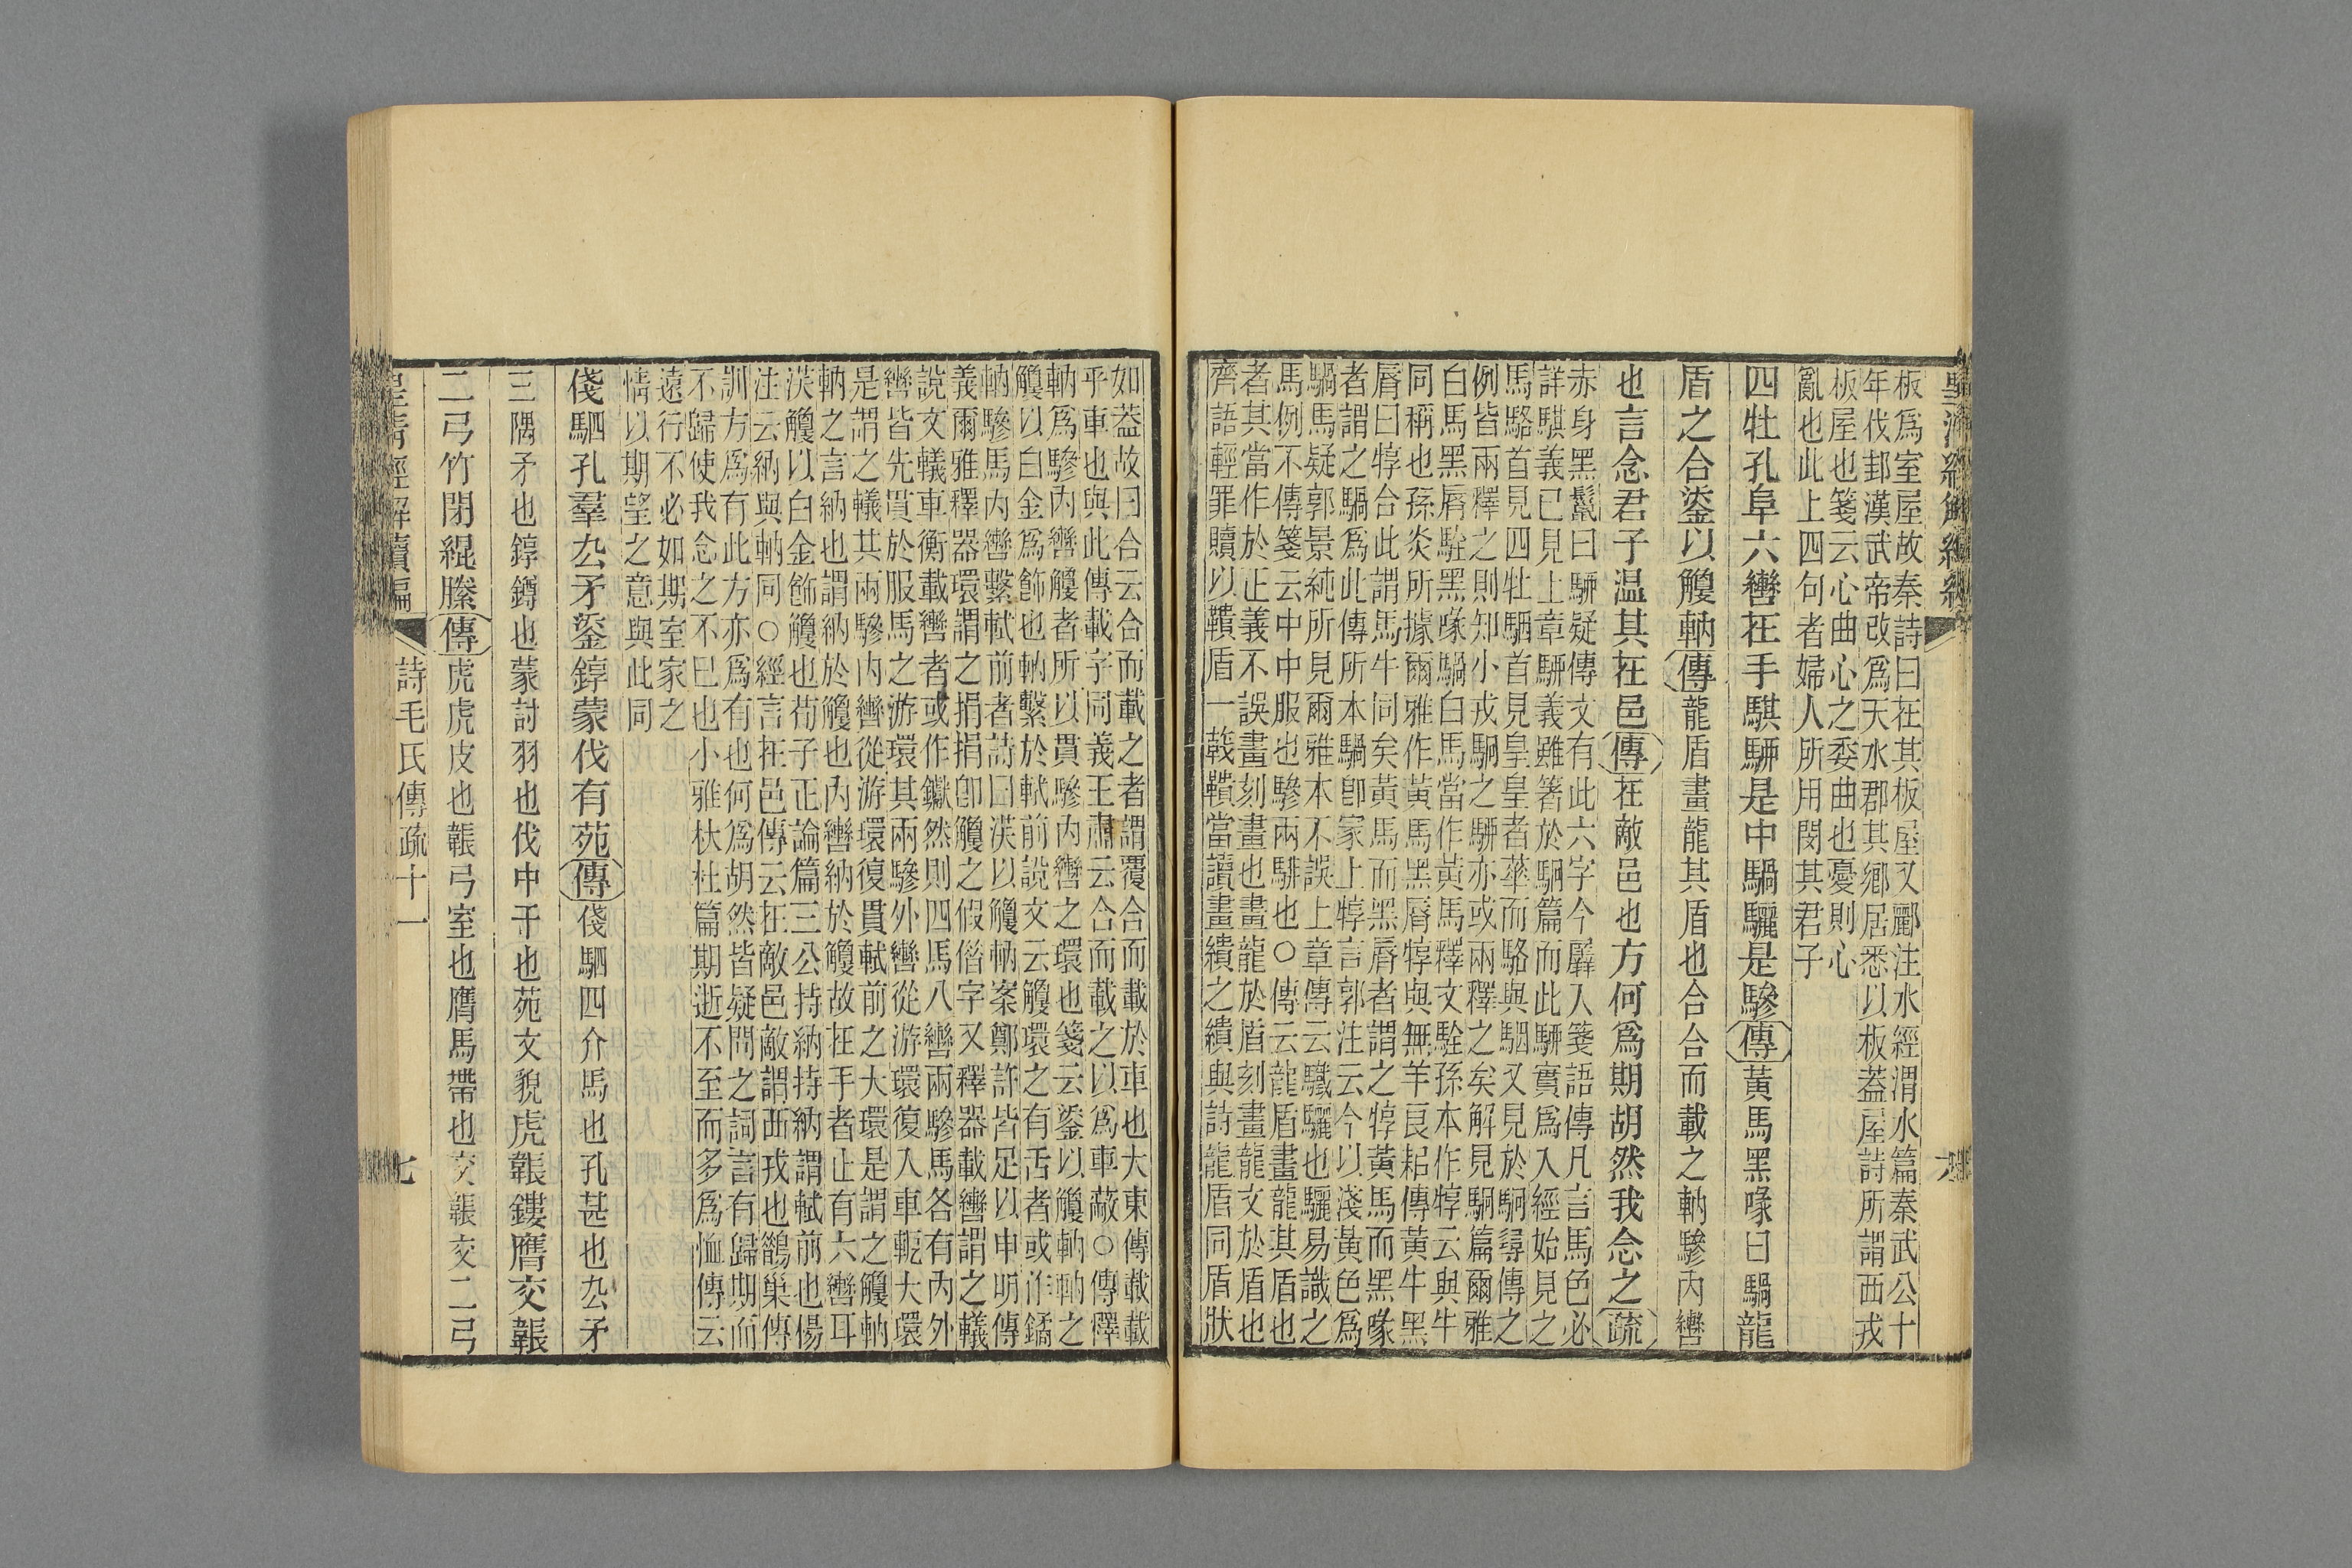 板爲室屋故秦詩曰在其板屋又酈注水經渭水篇秦武公十
年伐邽漢武帝改爲天水郡其鄉居悉以板蓋屋詩所謂西戎
板屋也箋云心曲心之委曲也憂則心
亂也此上四句者婦人所用閔其君子
四牡孔阜六轡在手騏駵是中騧驪是驂傳黃馬黑喙曰騧龍
盾之合鋈以觼軜傳龍盾畫龍其盾也合合而載之軜驂內轡
也言念君子温其在邑傳在敵邑也方何爲期胡然我念之疏
赤身黑鬣曰駵疑傳文有此六字今羼入箋語傳凡言馬色必
詳騏義已見上章駵義雖箸於駉篇而此駵實爲入經始見之
馬駱首見四牡駰首見皇皇者華而駱與駰又見於駉尋傳之
例皆兩釋之則知小戎駉之駵亦或兩釋之矣解見駉篇爾雅
白馬黑脣駩黑喙騧白馬當作黃馬釋文駩孫本作犉云與牛
同稱也孫炎所據爾雅作黃馬黑脣犉與無羊良耜傳黃牛黑
脣曰犉合此謂馬牛同矣黃馬而黑脣者謂之犉黃馬而黑喙
者謂之騧爲此傳所本騧卽家上犉言郭注云今以淺黃色爲
騧馬疑郭景純所見爾雅本不誤上章傳云驖驪也驪易識之
馬例不傳箋云中中服也驂兩騑也○傳云龍盾畫龍其盾也
者其當作於正義不誤畫刻畫也畫龍於盾刻畫龍文於盾也
齊語輕罪贖以鞼盾一戟鞼當讀畫繢之繢與詩龍盾同盾狀
如蓋故曰合云合而載之者謂覆合而載於車也大東傳載載
乎車也與此傳載字同義王肅云合而載之以爲車蔽○傳釋
軜爲驂內轡觼者所以貫驂內轡之環也箋云鋈以觼軜軜之
觼以白金爲飾也軜繫於軾前說文云觼環之有舌者或作鐍
軜驂馬內轡繫軾前者詩曰渶以觼軜案鄭許皆足以申明傳
義爾雅釋器環謂之捐捐卽觼之假偕字又釋器載轡謂之轙
說文轙車衡載轡者或作钀然則四馬八轡兩驂馬各有內外
轡皆先貫於服馬之游環其兩驂外轡從游環復入車軛大環
是謂之轙其兩驂內轡從游環復貫軾前之大環是謂之觼軜
軜之言納也謂納於觼也內轡納於觼故在手者止有六轡耳
渶觼以白金飾觼也荀子正論篇三公持納持納謂軾前也傷
注云納與軜同○經言在邑傳云在敵邑敵謂西戎也鵲巢傳
訓方爲有此方亦爲有也何爲胡然皆疑問之詞言有歸期而
不歸使我念之不巳也小雅杕杜篇期逝不至而多爲恤傳云
遠行不必如期室家之
情以期望之意與此同
俴駟孔羣厹矛鋈錞蒙伐有苑傳俴駟四介馬也孔甚也厹矛
三隅矛也錞鐏也蒙討羽也伐中干也苑文貌虎韔鏤膺交韔
二弓竹閉緄縢傳虎虎皮也韔弓室也膺馬帶也交韔交二弓
皇清經解續編
詩毛氏傳疏十一
七